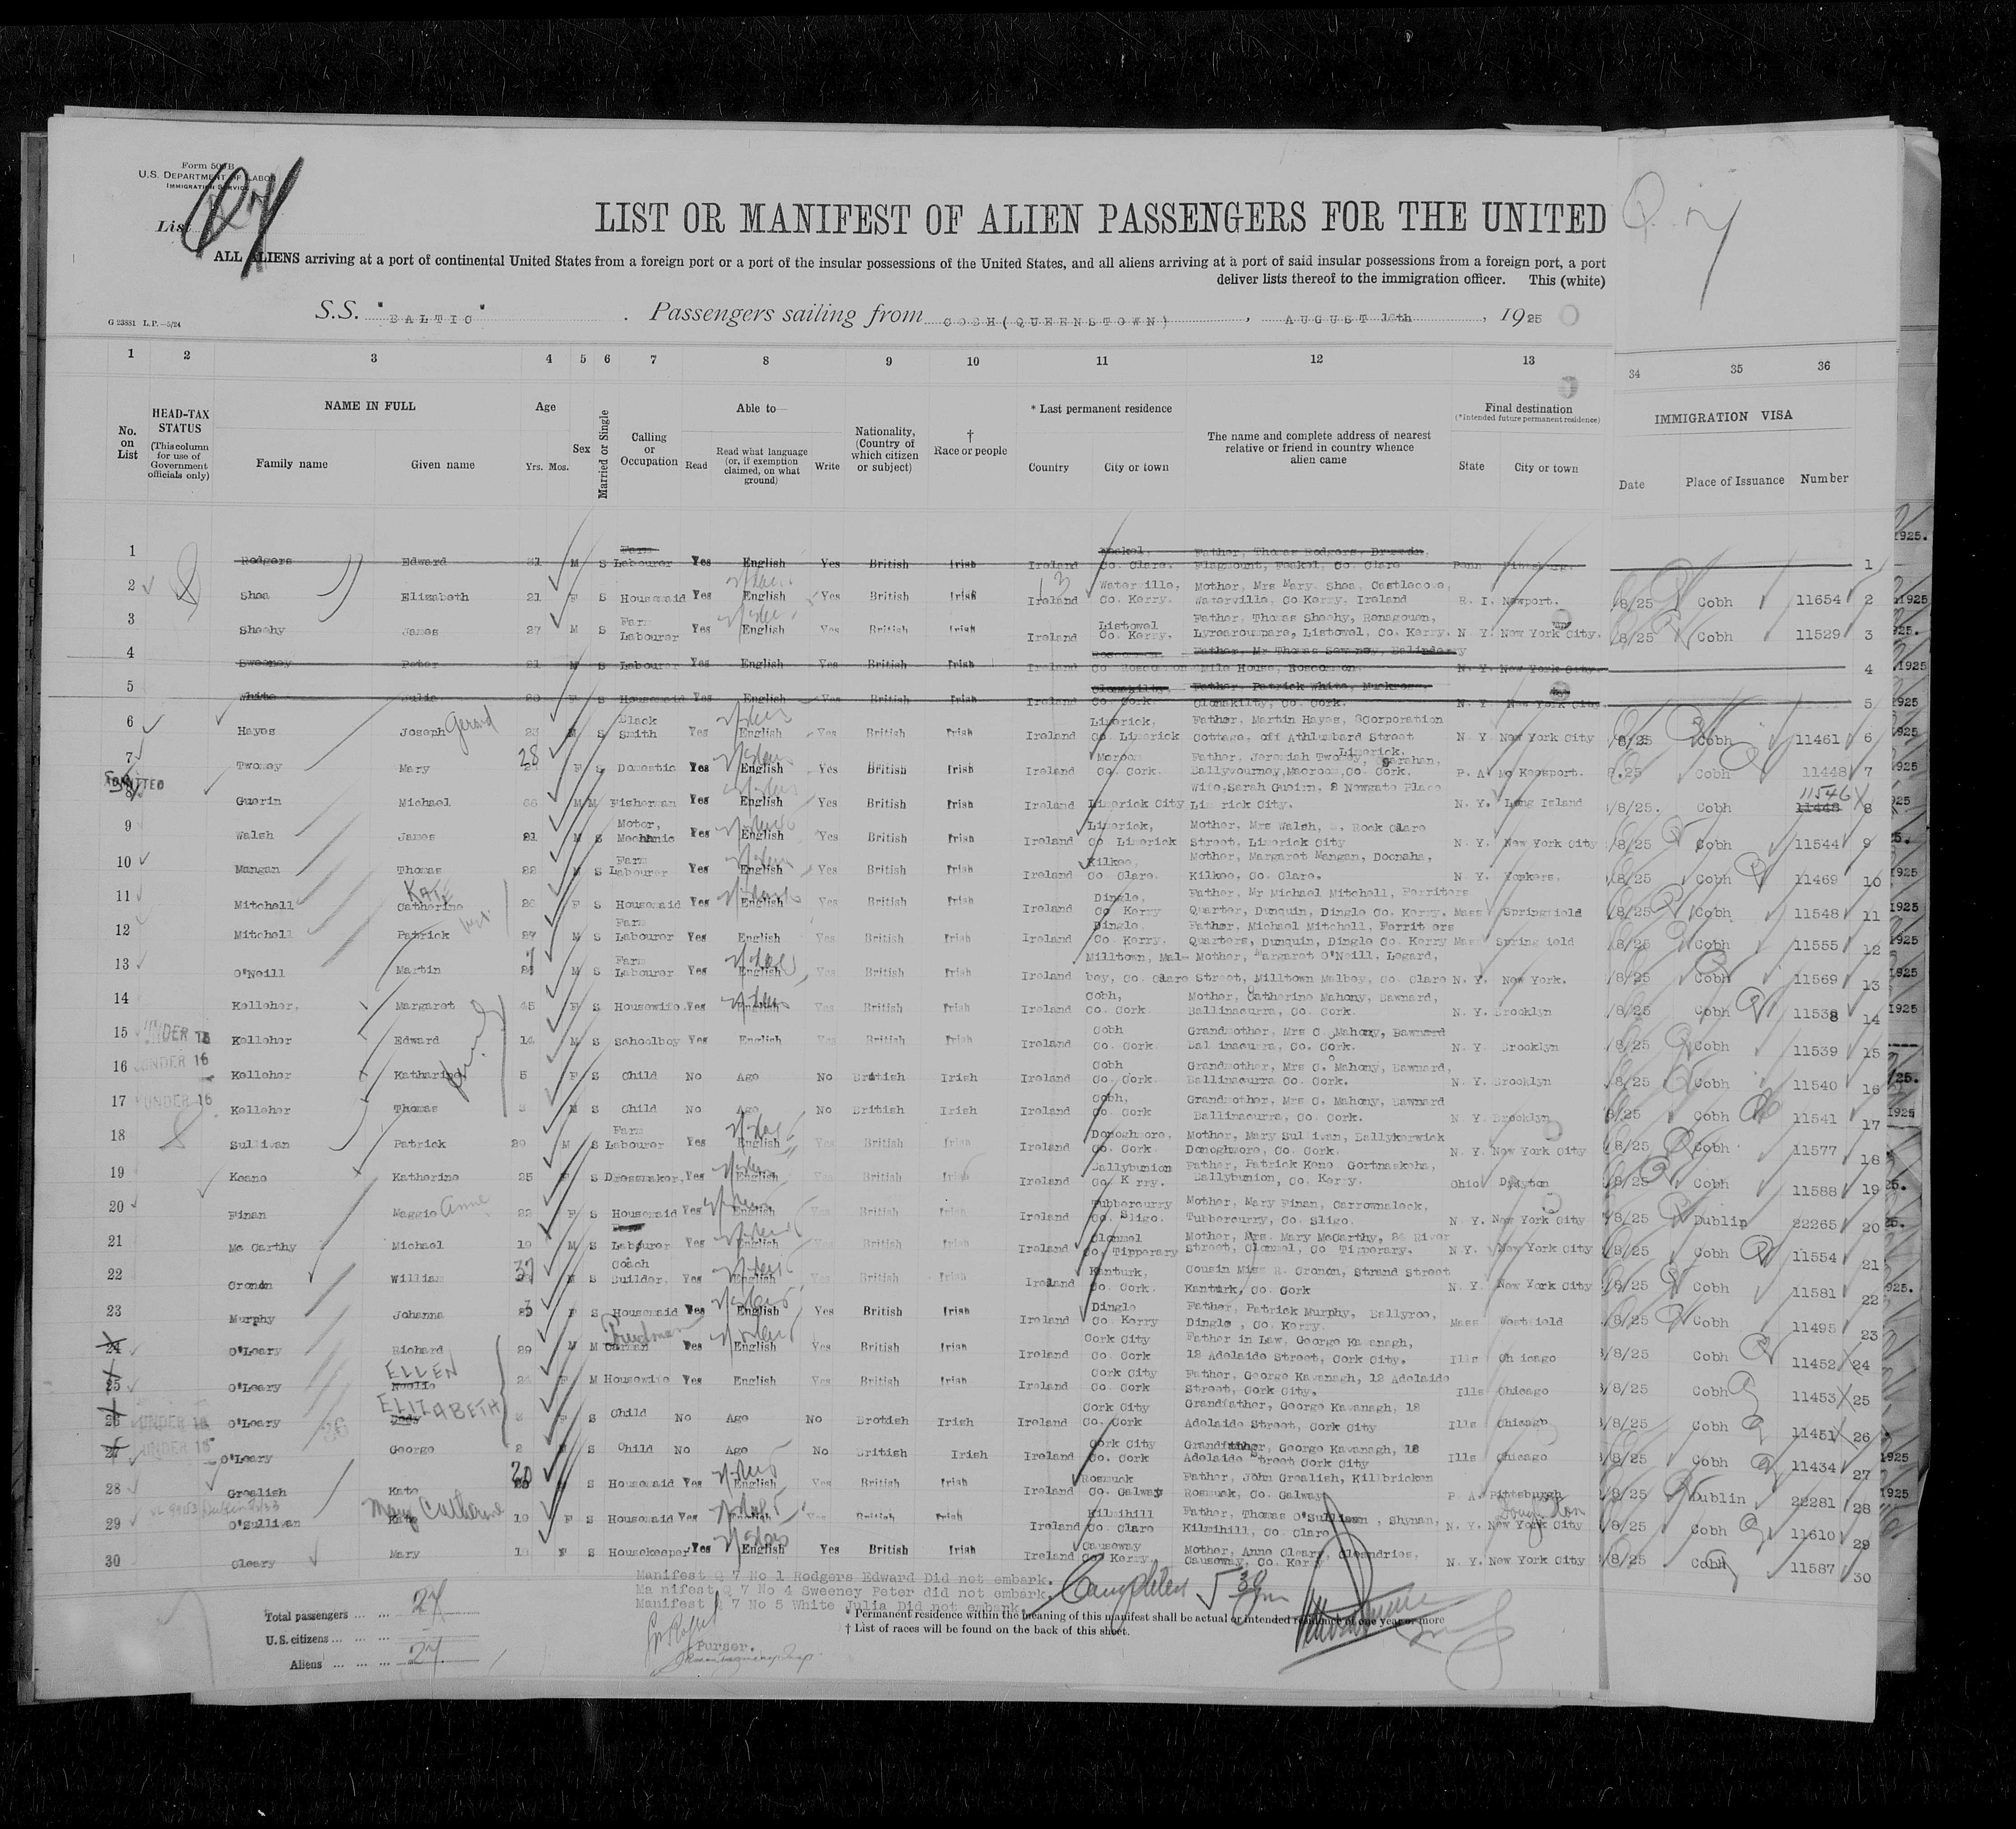 Form 500B
U.S. DEPARTMENT OF LABOR
IMMIGRATION SERVICE
List Q 7
LIST OR MANIFEST OF ALIEN PASSENGERS FOR THE UNITED
ALL ALIENS arriving at a port of continental United States from a foreign port or a port of the insular possessions of the United States, and all aliens arriving at a port of said insular possessions from a foreign port, a port
deliver lists thereof to the immigration officer. This (white)
G 23881 L.P.—5/24
S.S. "BALTIC". Passengers sailing from COBH (QUEENSTOWN), AUGUST 16th, 1925
1 2 3 4 5 6 7 8 9 10 11 12 13 34 35 36
No. on List
HEAD-TAX STATUS (This column for use of Government officials only)
NAME IN FULL Family name Given name
Age Yrs. Mos.
Sex
Married or Single
Calling or Occupation
Able to— Read Read what language (or, if exemption claimed, on what ground) Write
Nationality, (Country of which citizen or subject)
† Race or people
* Last permanent residence Country City or town
The name and complete address of nearest relative or friend in country whence alien came
Final destination (*Intended future permanent residence) State City or town
IMMIGRATION VISA Date Place of Issuance Number
1 Rodgers Edward 21 M S Farm Labourer Yes English Yes British Irish Ireland Feakel, Co. Clare. Father, Thomas Rodgers, Flagmount, Feakel, Co. Clare Penn Pittsburg. 1
2 Shea Elizabeth 21 F S Housemaid Yes English Yes British Irish Ireland Waterville, Co. Kerry. Mother, Mrs Mary Shea, Castlecove, Waterville, Co Kerry, Ireland R. I. Newport. 8/25 Cobh 11654 2
3 Sheehy James 27 M S Farm Labourer Yes English Yes British Irish Ireland Listowel Co. Kerry. Father, Thomas Sheehy, Renagouen, Lyrearoumpare, Listowel, Co. Kerry. N. Y. New York City. 8/25 Cobh 11529 3
4 Sweeney Peter 21 M S Labourer Yes English Yes British Irish Ireland Roscommon Co Roscommon Father, Mr Thomas Sweeney, Balinderry Mile House, Roscommon N. Y. New York City. 4
5 White Julia 20 F S Housemaid Yes English Yes British Irish Ireland Clonakilty, Co. Cork. Father, Patrick White, Muckross, Clonakilty, Co. Cork. N. Y. New York City. 5
6 Hayes Joseph Gerard 23 M S Black Smith Yes English Yes British Irish Ireland Limerick, Co. Limerick Father, Martin Hayes, 8Corporation Cottage, off Athlunbard Street Limerick. N Y. New York City 8/25 Cobh 11461 6
7 Twomey Mary 28 F S Domestic Yes English Yes British Irish Ireland Macroom Co. Cork. Father, Jeremiah Twomey, Carahan, Ballyvourney, Macroom, Co. Cork. P. A. Mc Keesport. 8.25 Cobh 11448 7
ADMITTED 8 Guerin Michael 66 M M Fisherman Yes English Yes British Irish Ireland Limerick City Wife, Sarah Gueirn, 8 Newgate Place Lim rick City. N. Y. Long Island /8/25. Cobh 11448 11546 8
9 Walsh James 21 M S Motor, Mechanic Yes English Yes British Irish Ireland Limerick, Co Limerick Mother, Mrs Walsh, Rock Clare Street, Limerick City N. Y. New York City /8/25 Cobh 11544 9
10 Mangan Thomas 22 M S Farm Labourer Yes English Yes British Irish Ireland Kilkee, Co. Clare. Mother, Margaret Mangan, Doonaha, Kilkee, Co. Clare. N Y. Yonkers. 8/25 Cobh 11469 10
11 Mitchell Catherine KATE 26 F S Housemaid Yes English Yes British Irish Ireland Dingle, Co Kerry Father, Mr Michael Mitchell, Ferriters Quarter, Dunquin, Dingle Co. Kerry. Mass Springfield /8/25 Cobh 11548 11
12 Mitchell Patrick 27 M S Farm Labourer Yes English Yes British Irish Ireland Dingle, Co. Kerry. Father, Michael Mitchell, Ferrit ers Quarters, Dunquin, Dingle Co. Kerry Mass Spring ield /8/25 Cobh 11555 12
13 O'Neill Martin M S Farm Labourer Yes English Yes British Irish Ireland Milltown, Mal-bey, Co. Clare Mother, Margaret O'Neill. Legard, Street, Milltown Malbey, Co. Clare N. Y. New York. /8/25 Cobh 11569 13
14 Kelleher, Margaret 45 F S Housewife. Yes English Yes British Irish Ireland Cobh, Co. Cork Mother, Catherine Mahony, Bawnard, Ballinacurra, Co. Cork. N. Y. Brooklyn /8/25 Cobh 11538 14
15 UNDER 16 Kelleher Edward 14 M S Schoolboy Yes English Yes British Irish Ireland Cobh Co. Cork. Grandmother, Mrs C. Mahony, Bawnard Bal inacurra, Co. Cork. N. Y. Brooklyn /8/25 Cobh 11539 15
16 UNDER 16 Kelleher Katharine 5 F S Child No Age No British Irish Ireland Cobh Co. Cork Grandmother, Mrs C. Mahony, Bawnard, Ballinacurra Co. Cork. N. Y. Brooklyn /8/25 Cobh 11540 16
17 UNDER 16 Kelleher Thomas 3 M S Child No Age No British Irish Ireland Cobh, Co. Cork Grandmother, Mrs C. Mahony, Bawnard Ballinacurra, Co. Cork. N. Y. Brooklyn 8/25 Cobh 11541 17
18 Sullivan Patrick 29 M S Farm Labourer Yes English Yes British Irish Ireland Donoghmore, Co. Cork. Mother, Mary Sullivan, Ballykerwick Donoghmore, Co. Cork. N. Y. New York City 8/25 Cobh 11577 18
19 Keane Katherine 25 F S Dressmaker. Yes English Yes British Irish Ireland Ballybunion Co. K rry. Father, Patrick Kene Gortnaskeha, Ballybunion, Co. Kerry. Ohio Dayton 8/25 Cobh 11588 19
20 Finan Maggie Anne 22 F S Housemaid Yes English Yes British Irish Ireland Tubbercurry Co. Sligo. Mother, Mary Finan, Carrownaleck, Tubbercurry, Co. Sligo. N. Y. New York City /8/25 Dublin 22265 20
21 Mc Carthy Michael 19 M S Labourer Yes English Yes British Irish Ireland Clonmel Co. Tipperary Mother, Mrs. Mary McCarthy, 84 River Street, Clonmel, Co Tipperary. N.Y. New York City /8/25 Cobh 11554 21
22 Cronen William 37 M S Coach Builder. Yes English Yes British Irish Ireland Kanturk, Co. Cork. Cousin Miss R. Cronen, Strand Street Kanturk, Co. Cork N. Y. New York City /8/25 Cobh 11581 22
23 Murphy Johanna 23 F S Housemaid Yes English Yes British Irish Ireland Dingle Co. Kerry Father, Patrick Murphy, Ballyroe, Dingle, Co. Kerry. Mass Westfield 8/25 Cobh 11495 23
24 O'Leary Richard 29 M M Carman Yes English Yes British Irish Ireland Cork City Co. Cork Father in Law, George Kavanagh, 18 Adelaide Street, Cork City. Ills Chicago 8/8/25 Cobh 11452 24
25 O'Leary Neelie ELLEN F M Housewife Yes English Yes British Irish Ireland Cork City Co. Cork Father, George Kavanagh, 18 Adelaide Street, Cork City. Ills Chicago 8/8/25 Cobh 11453 25
26 UNDER 16 O'Leary ELIZABETH F S Child No Age No Brotish Irish Ireland Cork City Co. Cork Grandfather, George Kavanagh, 18 Adelaide Street, Cork City Ills Chicago 8/8/25 Cobh 11451 26
27 UNDER 16 O'Leary George 2 M S Child No Age No British Irish Ireland Cork City Co. Cork Grandfather, George Kavanagh, 18 Adelaide Street Cork City Ills Chicago 8/8/25 Cobh 11434 27
28 Grealish Kate 20 S Housemaid Yes English Yes British Irish Ireland Rosmuck Co. Galway Father, John Grealish, Killbricken Rosmuck, Co. Galway P. A. Pittsburgh /8/25 Dublin 22281 28
29 O'Sullivan Kate Mary Catherine 19 F S Housemaid Yes English Yes British Irish Ireland Kilmihill Co. Clare Father, Thomas O'Sullivan, Shynan, Kilmihill, Co. Clare N. Y. New York City 8/8/25 Cobh 11610 29
30 Cleary Mary 19 F S Housekeeper Yes English Yes British Irish Ireland Causeway Co. Kerry. Mother, Anne Cleary, Cleandries, Causeway, Co. Kerry N. Y. New York City 8/8/25 Cobh 11587 30
Manifest Q 7 No 1 Rodgers Edward Did not embark.
Ma nifest Q 7 No 4 Sweeney Peter did not embark.
Manifest Q 7 No 5 White Julia Did not embark.
Total passengers ... ... 27
U.S. citizens ... ... ...
Aliens ... ... ... 27
Purser.
* Permanent residence within the meaning of this manifest shall be actual or intended residence of one year or more
† List of races will be found on the back of this sheet.